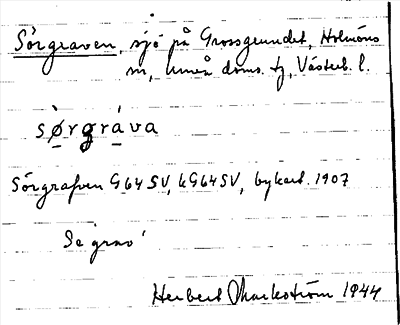 Sörgraven, sjö på Grossgrundet, Holmöns
sn, Umeå doms. tg, Västerb. l.
sørgráva
Sörgrafven G64SV, kG64SV, bykart. 1907
Se 'grav'
Herbert Markström 1944